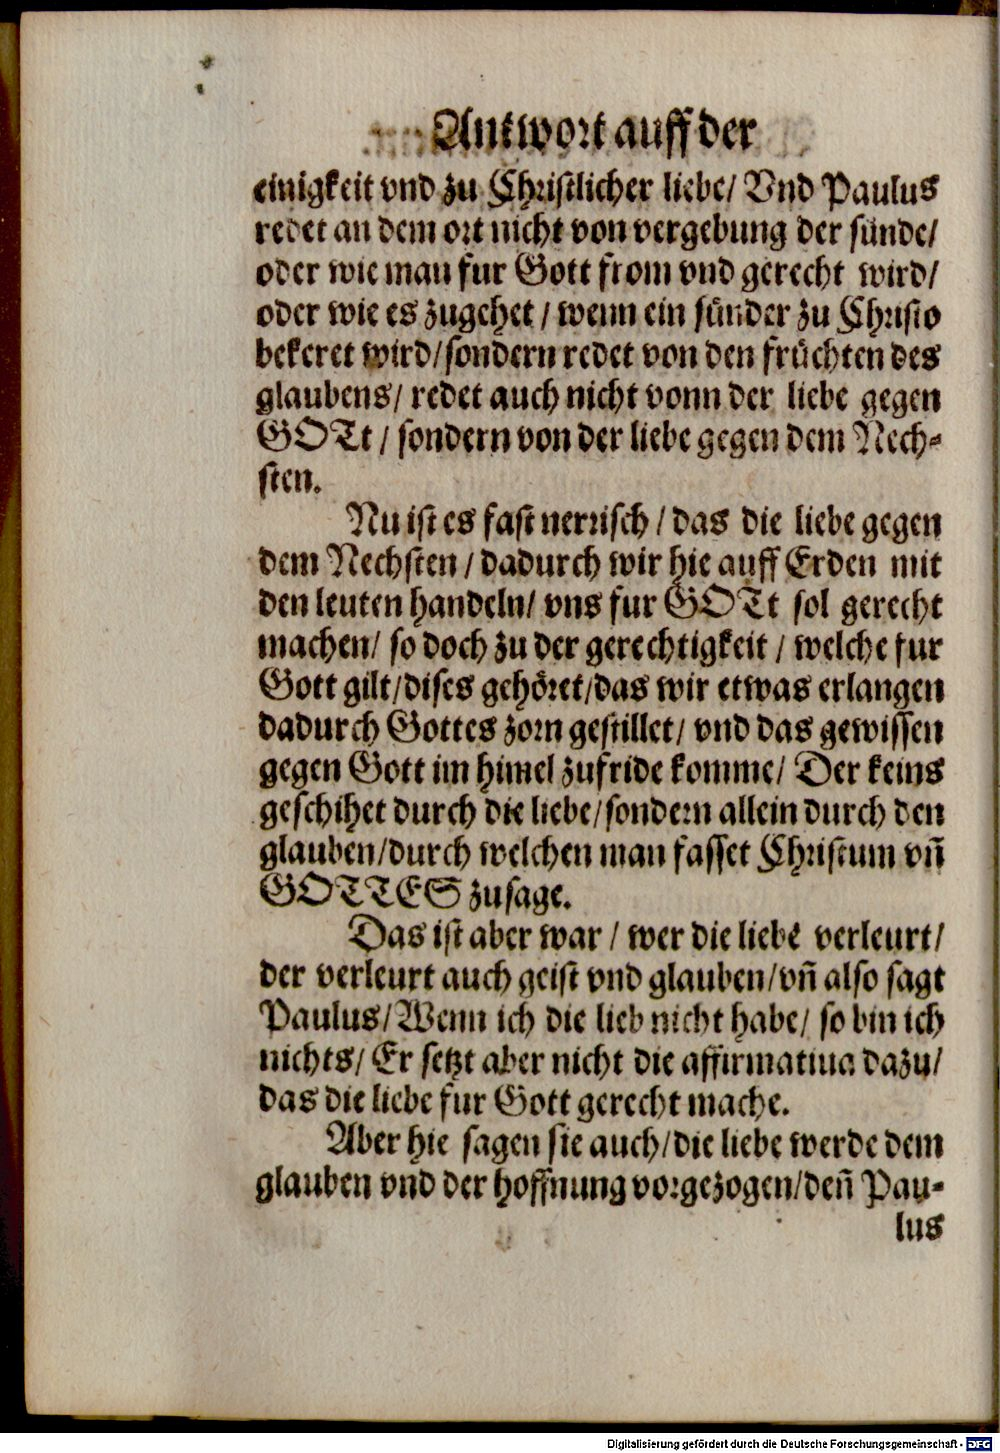 Antwort auff der
einigkeit vnd zu Christlicher liebe/ Vnd Paulus
redet an dem ort nicht von vergebung der sünde/
oder wie man fur Gott from vnd gerecht wird/
oder wie es zugehet / wenn ein sünder zu Christo
bekeret wird/sondern redet von den früchten des
glaubens/ redet auch nicht vonn der liebe gegen
GOTt / sondern von der liebe gegen dem Nech-
sten.
Nu ist es fast nerrisch / das die liebe gegen
dem Nechsten / dadurch wir hie auff Erden mit
den leuten handeln/ vns fur GOTt sol gerecht
machen/ so doch zu der gerechtigkeit / welche fur
Gott gilt/dises gehöret/das wir etwas erlangen
dadurch Gottes zorn gestillet/ vnd das gewissen
gegen Gott im himel zufride komme/ Der keins
geschihet durch die liebe/sondern allein durch den
glauben/durch welchen man fasset Christum vñ
GOTTES zusage.
Das ist aber war / wer die liebe verleurt/
der verleurt auch geist vnd glauben/vñ also sagt
Paulus/Wenn ich die lieb nicht habe/ so bin ich
nichts/ Er setzt aber nicht die affirmatiua dazu/
das die liebe fur Gott gerecht mache.
Aber hie sagen sie auch/die liebe werde dem
glauben vnd der hoffnung vorgezogen/deñ Pau-
lus
Digitalisierung gefördert durch die Deutsche Forschungsgemeinschaft - DFG